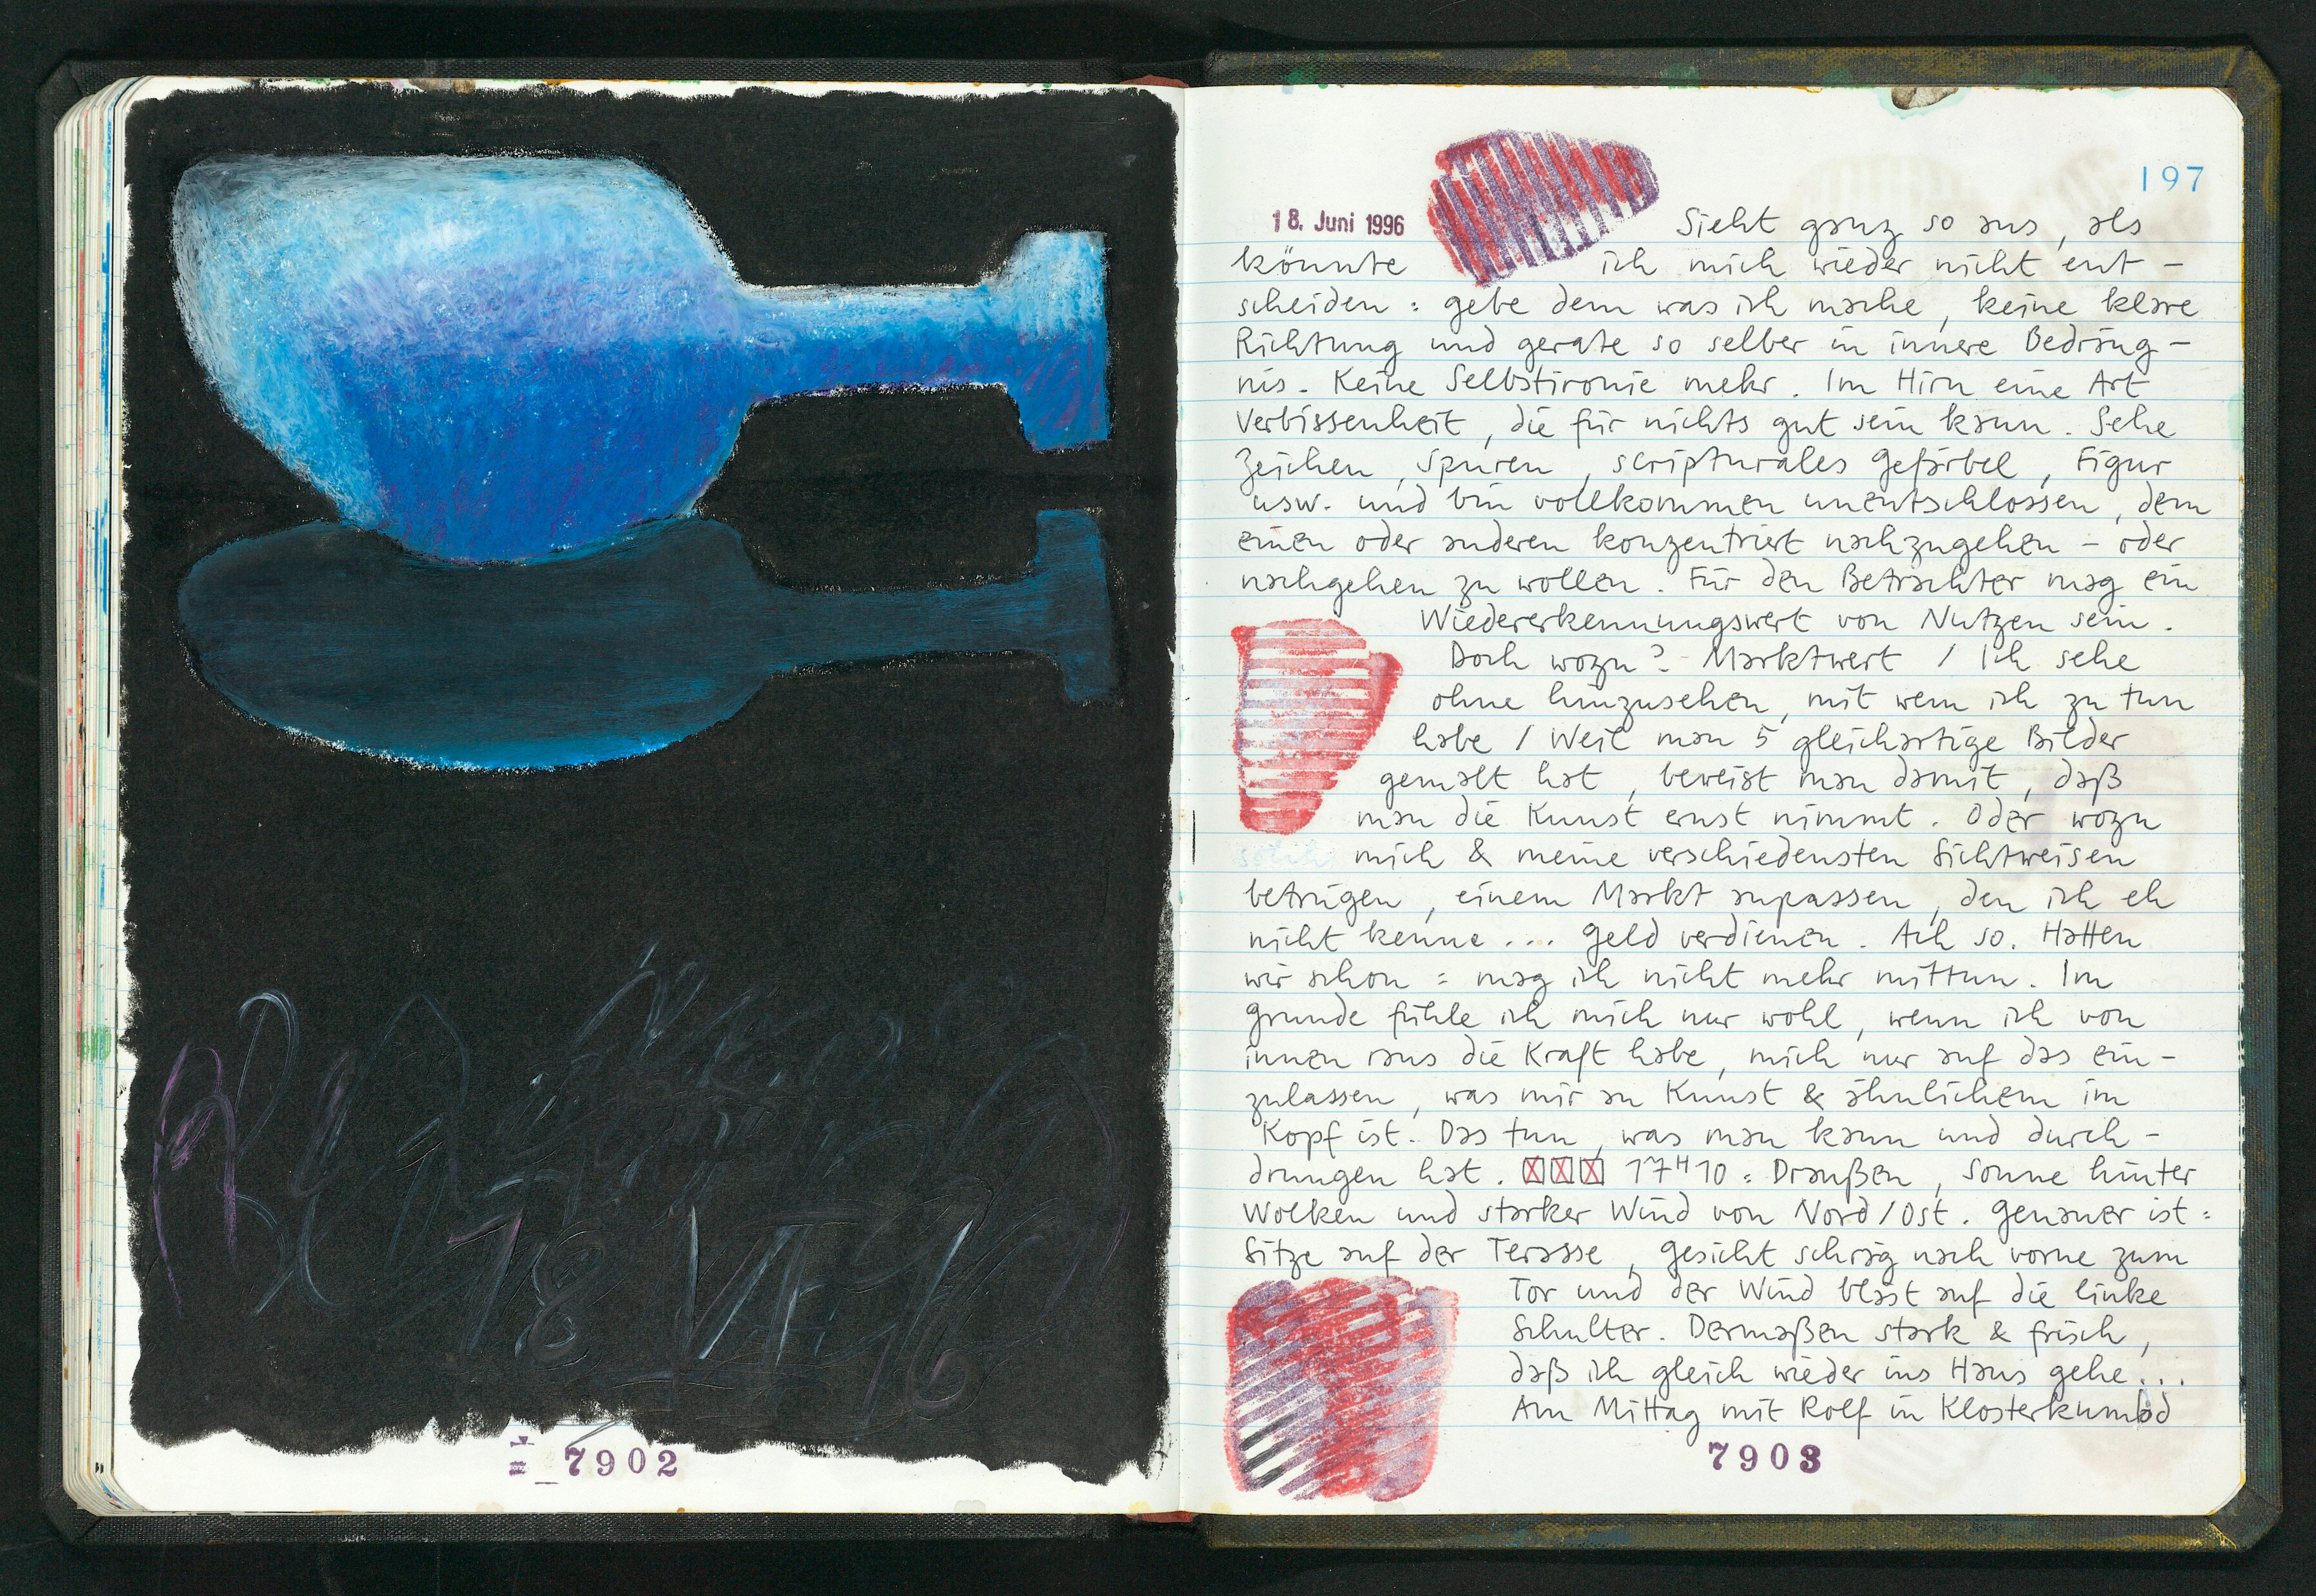 18 VI 96
7902
197
18. Juni 1996 Sieht ganz so aus, als
könnte ich mich wieder nicht ent-
scheiden : gebe dem was ich mache, keine klare
Richtung und gerate so selber in innere Bedräng-
nis. Keine Selbstironie mehr. Im Hirn eine Art
Verbissenheit, die für nichts gut sein kann. Sehe
Zeichen, Spuren, scripturales Gefärbel, Figur
usw. und bin vollkommen unentschlossen, dem
einen oder anderen konzentriert nachzugehen – oder
nachgehen zu wollen. Für den Betrachter mag ein
Wiedererkennungswert von Nutzen sein.
Doch wozu? Marktwert / Ich sehe
ohne hinzusehen, mit wem ich zu tun
habe / Weil man 5 gleichartige Bilder
gemalt hat, beweist man damit, daß
man die Kunst ernst nimmt. Oder wozu
mich & meine verschiedensten Sichtweisen
betrügen, einem Markt anpassen, den ich eh
nicht kenne .... Geld verdienen. Ach so. Hatten
wir schon : mag ich nicht mehr mittun. Im
Grunde fühle ich mich nur wohl, wenn ich von
innen raus die Kraft habe, mich nur auf das ein-
zulassen, was mir an Kunst & ähnlichem im
Kopf ist. Das tun, was man kann und durch-
drungen hat. ☒☒☒ 17H10 : Draußen, Sonne hinter
Wolken und starker Wind von Nord/Ost. Genauer ist :
Sitze auf der Terasse, Gesicht schräg nach vorne zum
Tor und der Wind bläst auf die linke
Schulter. Dermaßen stark & frisch,
daß ich gleich wieder ins Haus gehe...
Am Mittag mit Rolf in Klosterkumbd
7903